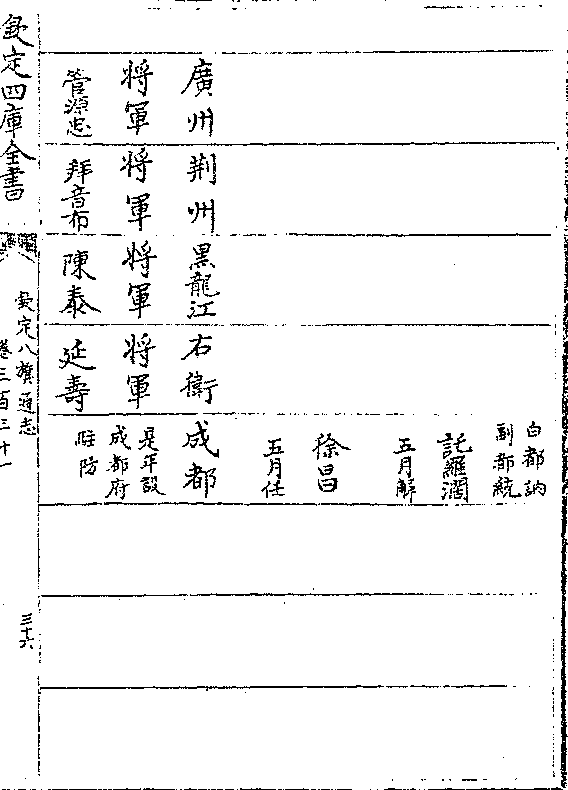 廣州
將軍
管源忠
荆州
將軍
拜音布
黒龍江
將軍
陳泰
右衛
將軍
延壽
白都訥
副都統
託羅濶
五月解
徐昌
五月任
成都
是年設
成都府
駐防
欽定四庫全書
欽定八旗通志
卷三百三十一
三十六